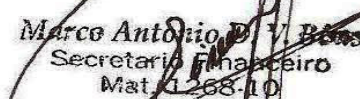 Marco Antônio D. V.
Secretario Financeiro
Mat. 1268-10